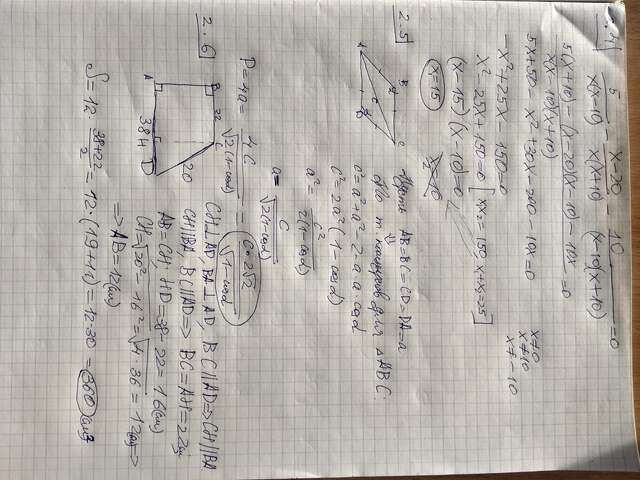 .4
5/x(x-10) - x-20/x(x+10) - 10/(x-10)(x+10) = 0
x≠0
x≠10
x≠-10
5(x+10) - (x-20)(x-10) - 10x / x(x-10)(x+10) = 0
5x+50 - x²+30x-200-10x=0
-x²+25x-150=0
x²-25x+150=0 [x₁x₂=150, x₁+x₂=25]
(x-15)(x-10)=0
x=15 x=10
2.5
A B C
AB=BC=CD=DA=a
ΔABC:
a²=a²+a²-2·a·a·cosα
c²=2a²(1-cosα)
a²= c²/2(1-cosα)
a= c/√2(1-cosα)
P=4a= 4c/√2(1-cosα) = c·2√2/√1-cosα
2.6
B 22 C
20
A 38 H D
CH⊥AD, BA⊥AD, BC||AD ⇒ CH||BA
CH||BA, BC||AD ⇒ BC=AH=22
AB=CH; HD=38-22=16(см)
CH=√20²-16²=√4·36=12(см) ⇒
⇒ AB=12(см)
S=12· 38+22/2 =12·(19+11)=12·30=360